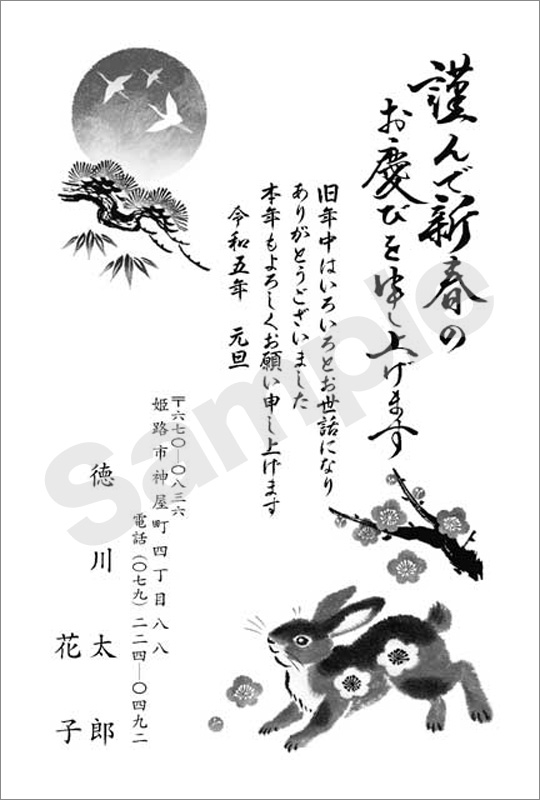 謹んで新春の
お慶びを申し上げます
旧年中はいろいろとお世話になり
ありがとうございました
本年もよろしくお願い申し上げます
令和五年 元旦
〒六七〇―〇八三六
姫路市神屋町四丁目八八
電話(〇七九)二二四―〇四九二
徳川太郎
花子
Sample